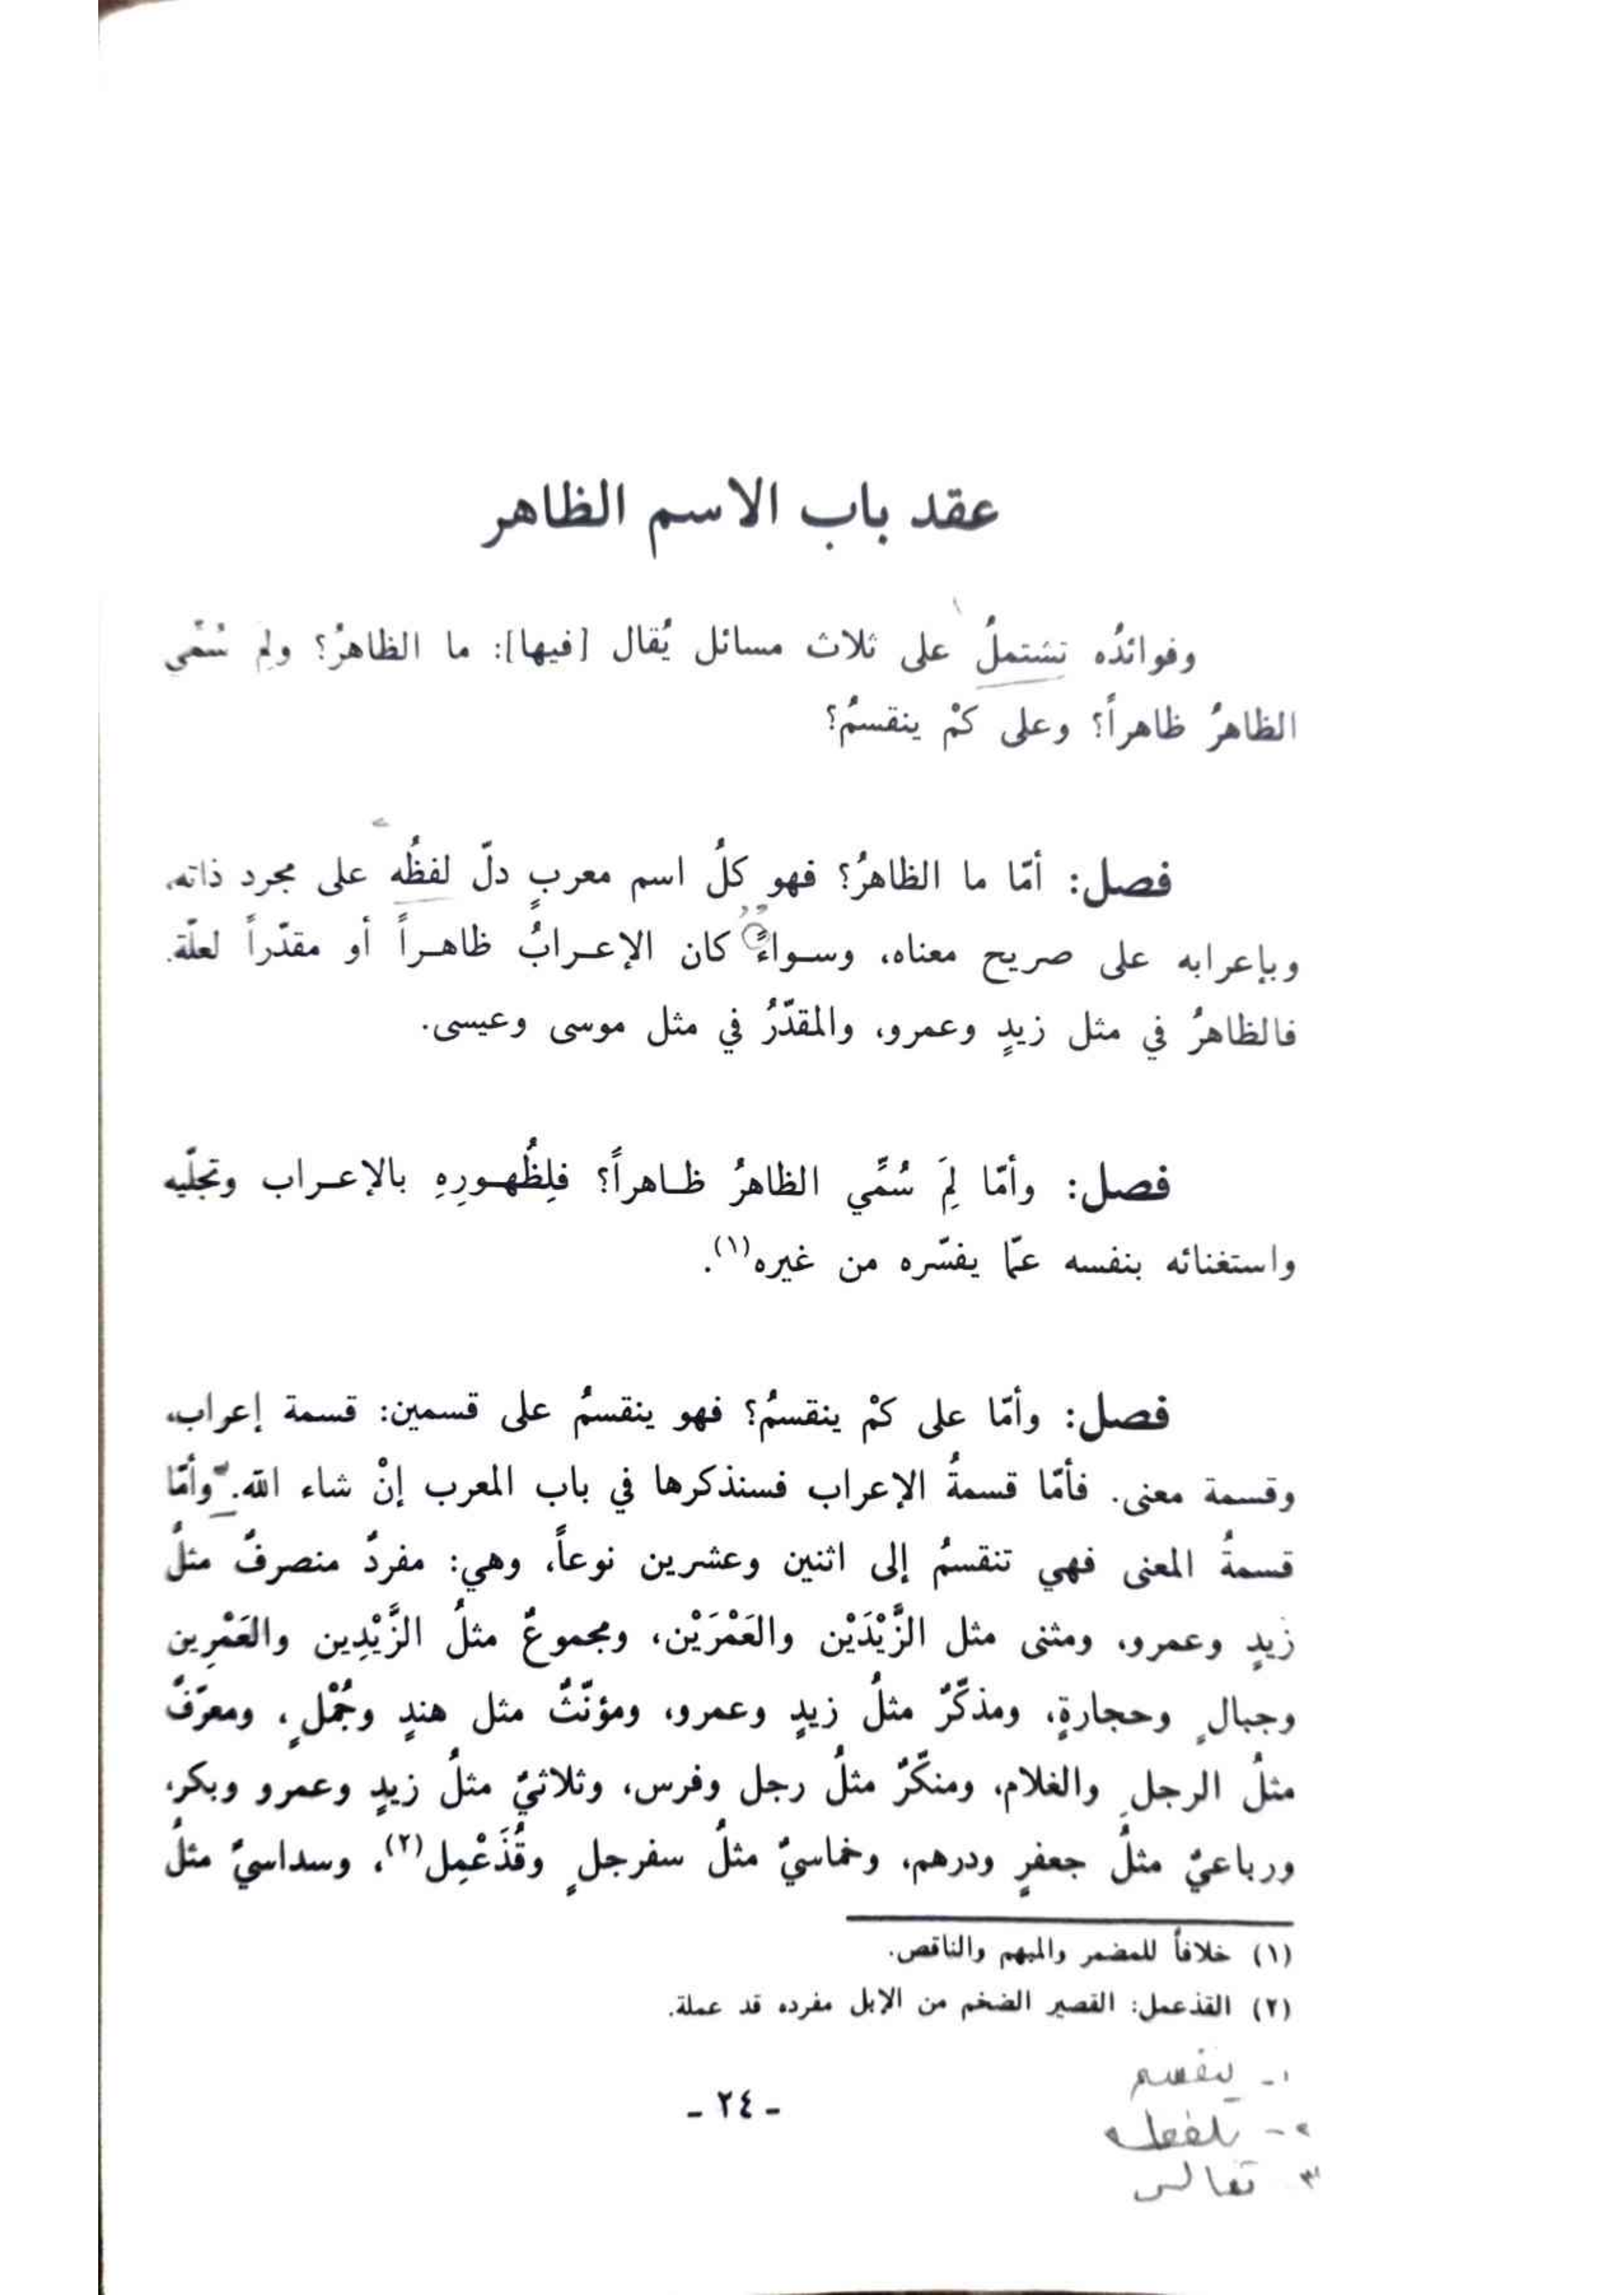 عقد باب الاسم الظاهر
وفوائدُه تشتملُ على ثلاث مسائل يُقال [فيها]: ما الظاهرُ؟ ولِمَ سُمّي
الظاهرُ ظاهراً؟ وعلى كمْ ينقسمُ؟
فصل: أمّا ما الظاهرُ؟ فهو كلُ اسم معربٍ دلّ لفظُه على مجرد ذاته،
وبإعرابه على صريح معناه، وسواءً كان الإعرابُ ظاهراً أو مقدّراً لعلّة.
فالظاهرُ في مثل زيدٍ وعمرو، والمقدّرُ في مثل موسى وعيسى.
فصل: وأمّا لِمَ سُمّي الظاهرُ ظاهراً؟ فلِظُهورِهِ بالإعراب وتجلّيه
واستغنائه بنفسه عمّا يفسّره من غيره(١).
فصل: وأمّا على كمْ ينقسمُ؟ فهو ينقسمُ على قسمين: قسمة إعراب،
وقسمة معنى. فأمّا قسمةُ الإعراب فسنذكرها في باب المعرب إنْ شاء الله. وأمّا
قسمةُ المعنى فهي تنقسمُ إلى اثنين وعشرين نوعاً، وهي: مفردٌ منصرفٌ مثلُ
زيدٍ وعمرو، ومثنى مثل الزَّيْدَيْن والعَمْرَيْن، ومجموعٌ مثلُ الزَّيْدِين والعَمْرِين
وجبالٍ وحجارةٍ، ومذكّرٌ مثلُ زيدٍ وعمرو، ومؤنّثٌ مثل هندٍ وجُمْلٍ، ومعرّفٌ
مثلُ الرجلِ والغلام، ومنكّرٌ مثلُ رجل وفرس، وثلاثيٌ مثلُ زيدٍ وعمرو وبكر،
ورباعيٌ مثلُ جعفرٍ ودرهم، وخماسيٌ مثلُ سفرجلٍ وقُذَعْمِل(٢)، وسداسيٌ مثلُ
(١) خلافاً للمضمر والمبهم والناقص.
(٢) القذعمل: القصير الضخم من الإبل مفرده قد عملة.
١- ينقسم
- ٢٤ -
٢- بلفظه
٣- تعالى